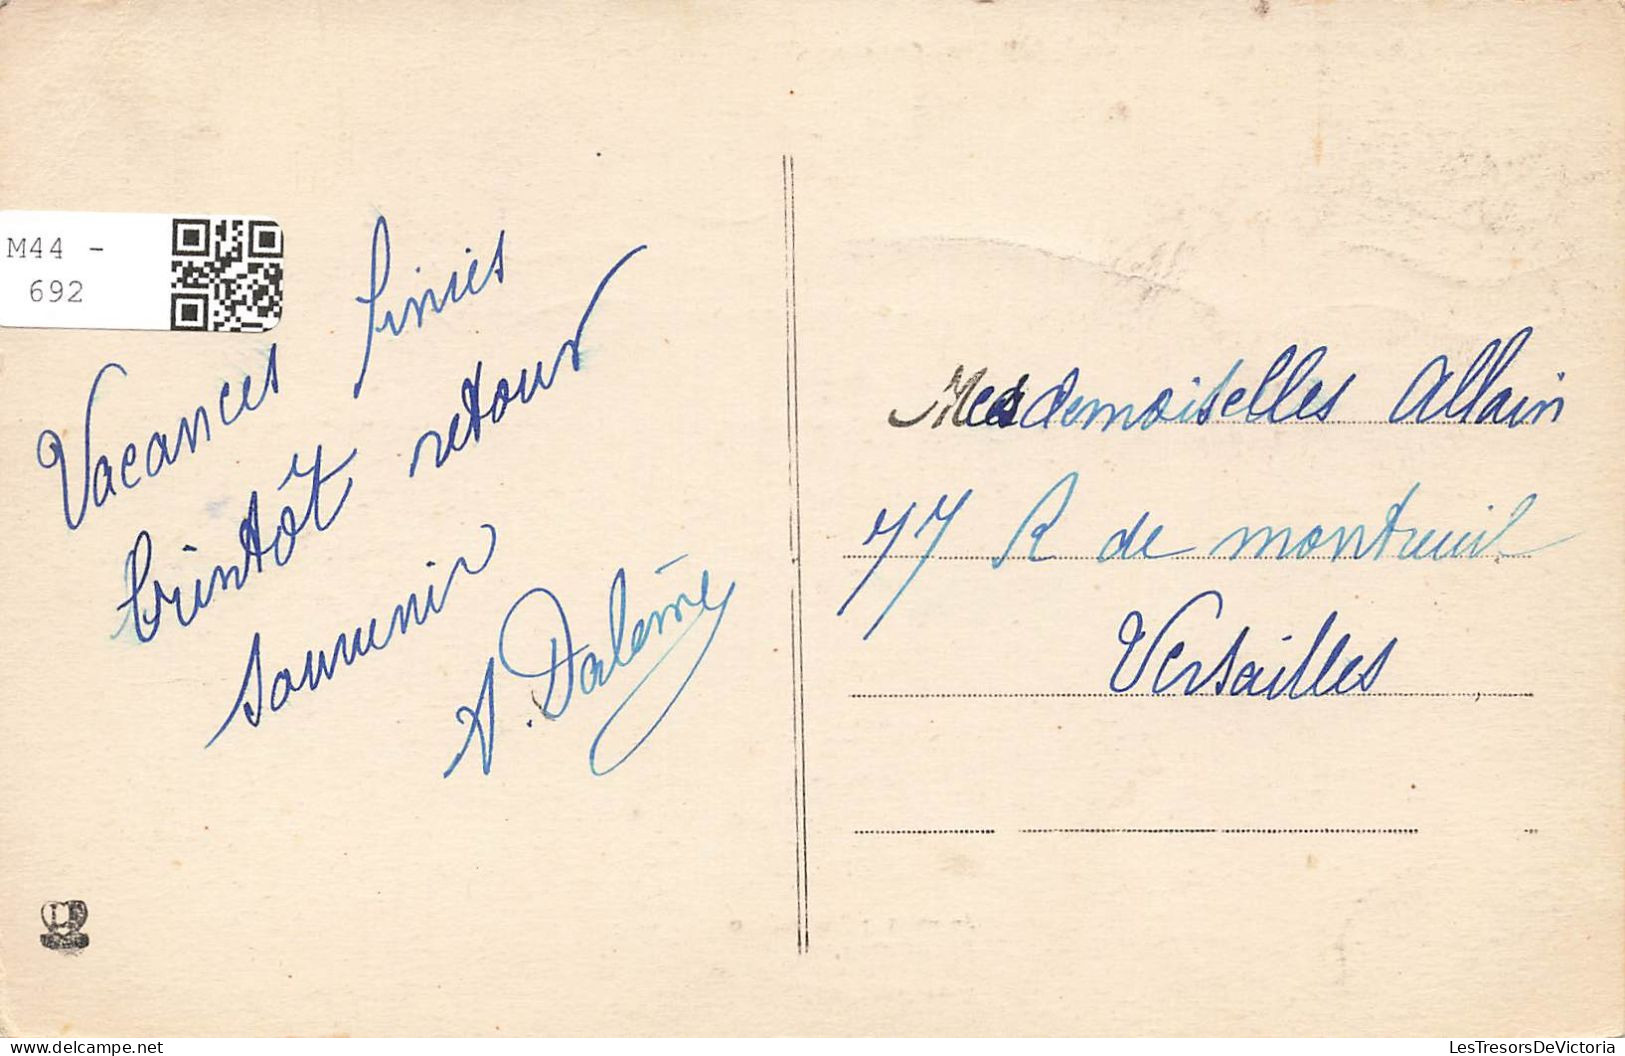 M44 -
692
Vacances finies
bientôt retour
souvenir
A. Dalémy
Mesdemoiselles Allain
77 R de montreuil
Versailles
delcampe.net
LesTresorsDeVictoria